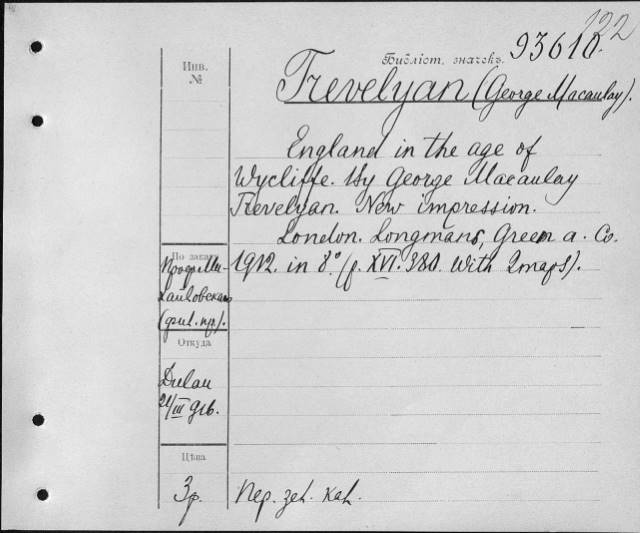 122
Библіот. значекъ 93610.
Инв.
№
Trevelyan (George Macaulay).
England in the age of
Wycliffe. By George Macaulay
Trevelyan. New impression.
London. Longmans, Green a. Co.
1912. in 8° (p. XVI. 380. With 2 maps).
По заказу
Проф. Ми-
хайловскаго
Откуда
Dulau
21/III
Цѣна
3р.
Пер. зел. кал.